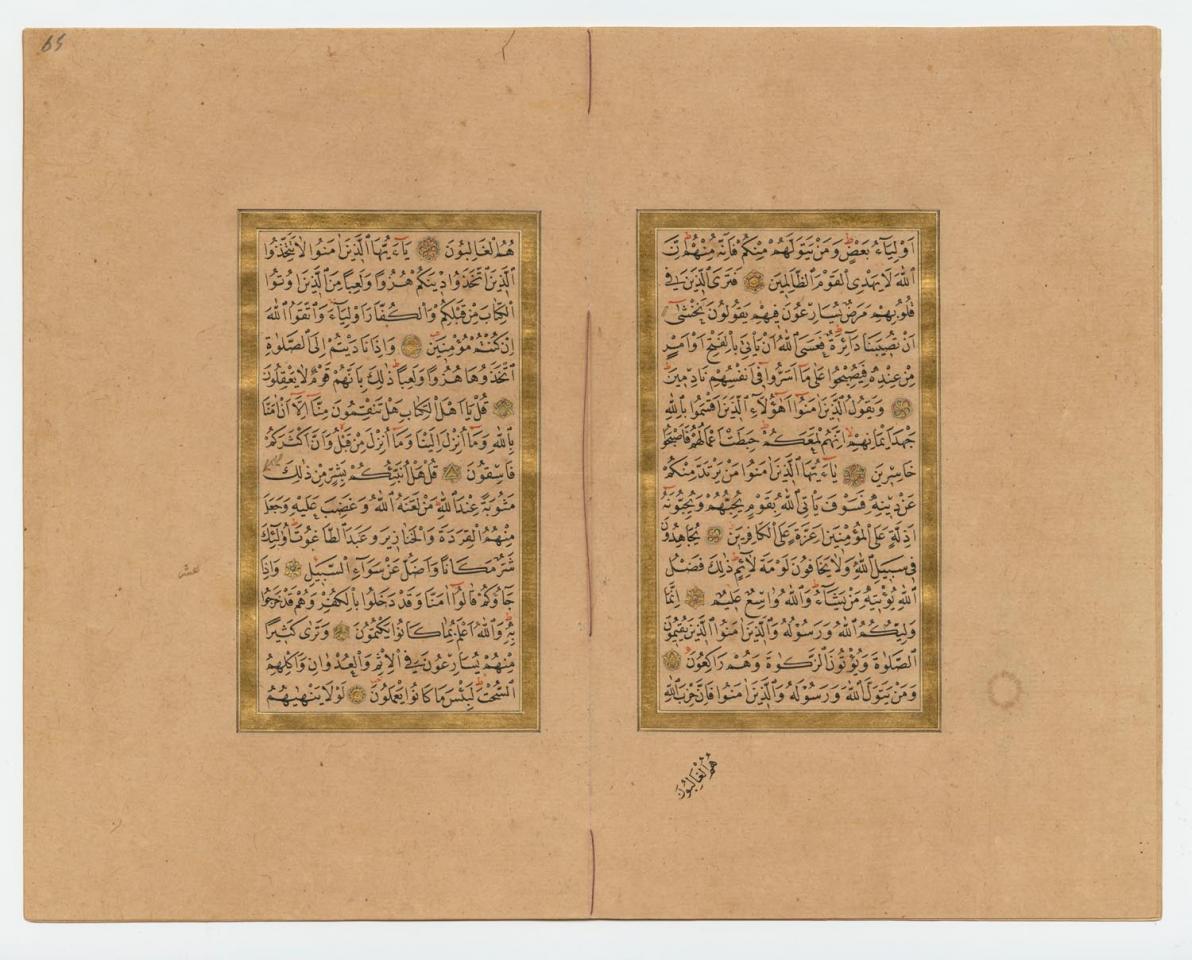 اَوْلِيَٓاءُ بَعْضٍ وَمَنْ يَتَوَلَّهُمْ مِنْكُمْ فَاِنَّهُ مِنْهُمْ اِنَّ
اللّٰهَ لَا يَهْدِى الْقَوْمَ الظَّالِمِينَ فَتَرَى الَّذِينَ فِى
قُلُوبِهِمْ مَرَضٌ يُسَارِعُونَ فِيهِمْ يَقُولُونَ نَخْشٰٓى
اَنْ تُصِيبَنَا دَٓائِرَةٌ فَعَسَى اللّٰهُ اَنْ يَأْتِىَ بِالْفَتْحِ اَوْ اَمْرٍ
مِنْ عِنْدِهِ فَيُصْبِحُوا عَلٰى مَٓا اَسَرُّوا فِٓى اَنْفُسِهِمْ نَادِمِينَ
وَيَقُولُ الَّذِينَ اٰمَنُٓوا اَهٰٓؤُلَٓاءِ الَّذِينَ اَقْسَمُوا بِاللّٰهِ
جَهْدَ اَيْمَانِهِمْ اِنَّهُمْ لَمَعَكُمْ حَبِطَتْ اَعْمَالُهُمْ فَاَصْبَحُوا
خَاسِرِينَ يَٓا اَيُّهَا الَّذِينَ اٰمَنُوا مَنْ يَرْتَدَّ مِنْكُمْ
عَنْ دِينِهِ فَسَوْفَ يَأْتِى اللّٰهُ بِقَوْمٍ يُحِبُّهُمْ وَيُحِبُّونَهُ
اَذِلَّةٍ عَلَى الْمُؤْمِنِينَ اَعِزَّةٍ عَلَى الْكَافِرِينَ يُجَاهِدُونَ
فِى سَبِيلِ اللّٰهِ وَلَا يَخَافُونَ لَوْمَةَ لَٓائِمٍ ذٰلِكَ فَضْلُ
اللّٰهِ يُؤْتِيهِ مَنْ يَشَٓاءُ وَاللّٰهُ وَاسِعٌ عَلِيمٌ اِنَّمَا
وَلِيُّكُمُ اللّٰهُ وَرَسُولُهُ وَالَّذِينَ اٰمَنُوا الَّذِينَ يُقِيمُونَ
الصَّلٰوةَ وَيُؤْتُونَ الزَّكٰوةَ وَهُمْ رَاكِعُونَ
وَمَنْ يَتَوَلَّ اللّٰهَ وَرَسُولَهُ وَالَّذِينَ اٰمَنُوا فَاِنَّ حِزْبَ اللّٰهِ
هُمُ الْغَالِبُونَ
هُمُ الْغَالِبُونَ يَٓا اَيُّهَا الَّذِينَ اٰمَنُوا لَا تَتَّخِذُوا
الَّذِينَ اتَّخَذُوا دِينَكُمْ هُزُوًا وَلَعِبًا مِنَ الَّذِينَ اُوتُوا
الْكِتَابَ مِنْ قَبْلِكُمْ وَالْكُفَّارَ اَوْلِيَٓاءَ وَاتَّقُوا اللّٰهَ
اِنْ كُنْتُمْ مُؤْمِنِينَ وَاِذَا نَادَيْتُمْ اِلَى الصَّلٰوةِ
اتَّخَذُوهَا هُزُوًا وَلَعِبًا ذٰلِكَ بِاَنَّهُمْ قَوْمٌ لَا يَعْقِلُونَ
قُلْ يَٓا اَهْلَ الْكِتَابِ هَلْ تَنْقِمُونَ مِنَّٓا اِلَّٓا اَنْ اٰمَنَّا
بِاللّٰهِ وَمَٓا اُنْزِلَ اِلَيْنَا وَمَٓا اُنْزِلَ مِنْ قَبْلُ وَاَنَّ اَكْثَرَكُمْ
فَاسِقُونَ قُلْ هَلْ اُنَبِّئُكُمْ بِشَرٍّ مِنْ ذٰلِكَ
مَثُوبَةً عِنْدَ اللّٰهِ مَنْ لَعَنَهُ اللّٰهُ وَغَضِبَ عَلَيْهِ وَجَعَلَ
مِنْهُمُ الْقِرَدَةَ وَالْخَنَازِيرَ وَعَبَدَ الطَّاغُوتَ اُولٰٓئِكَ
شَرٌّ مَكَانًا وَاَضَلُّ عَنْ سَوَٓاءِ السَّبِيلِ وَاِذَا
جَٓاؤُكُمْ قَالُٓوا اٰمَنَّا وَقَدْ دَخَلُوا بِالْكُفْرِ وَهُمْ قَدْ خَرَجُوا
بِهِ وَاللّٰهُ اَعْلَمُ بِمَا كَانُوا يَكْتُمُونَ وَتَرٰى كَثِيرًا
مِنْهُمْ يُسَارِعُونَ فِى الْاِثْمِ وَالْعُدْوَانِ وَاَكْلِهِمُ
السُّحْتَ لَبِئْسَ مَا كَانُوا يَعْمَلُونَ لَوْلَا يَنْهٰيهُمُ